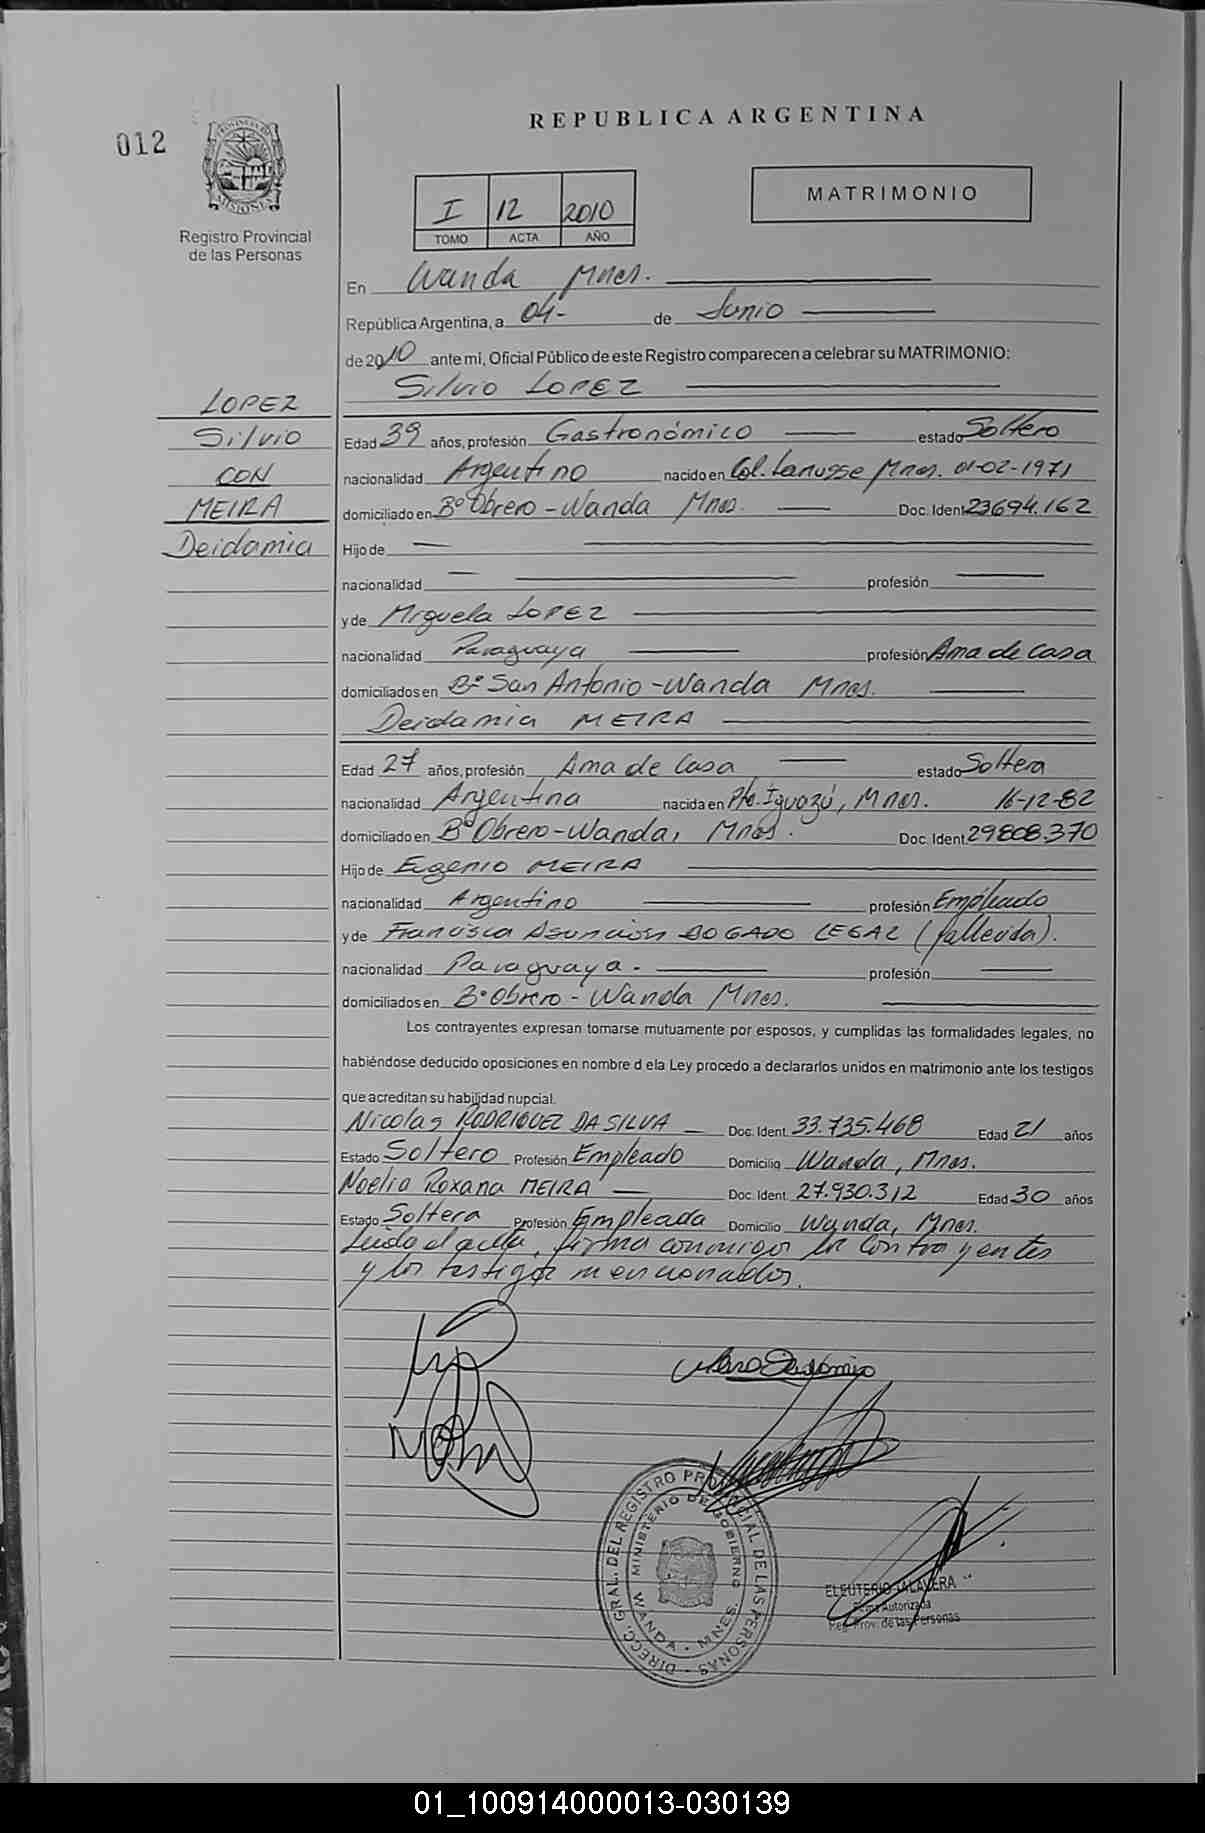 REPUBLICA ARGENTINA
012
PROVINCIA DE MISIONES
Registro Provincial
de las Personas
I 12 2010
TOMO ACTA AÑO
MATRIMONIO
En Wanda Mnes.
República Argentina, a 04- de Junio
de 2010 ante mi, Oficial Público de este Registro comparecen a celebrar su MATRIMONIO:
Silvio LOPEZ
LOPEZ
Silvio
CON
MEIRA
Deidamia
Edad 39 años, profesión Gastronómico estado Soltero
nacionalidad Argentino nacido en Col. Lanusse Mnes. 01-02-1971
domiciliado en Bº Obrero - Wanda Mnes. Doc. Ident 23694.162
Hijo de —
nacionalidad — profesión —
y de Miguela LOPEZ
nacionalidad Paraguaya profesión Ama de Casa
domiciliados en Bº San Antonio - Wanda Mnes.
Deidamia MEIRA
Edad 27 años, profesión Ama de Casa estado Soltera
nacionalidad Argentina nacida en Pto. Iguazú, Mnes. 16-12-82
domiciliado en Bº Obrero - Wanda, Mnes. Doc. Ident. 29808.370
Hija de Eugenio MEIRA
nacionalidad Argentino profesión Empleado
y de Francisca Asunción BOGADO LEGAL (fallecida).
nacionalidad Paraguaya. profesión —
domiciliados en Bº Obrero - Wanda Mnes.
Los contrayentes expresan tomarse mutuamente por esposos, y cumplidas las formalidades legales, no
habiéndose deducido oposiciones en nombre d ela Ley procedo a declararlos unidos en matrimonio ante los testigos
que acreditan su habilidad nupcial.
Nicolas RODRIGUEZ DA SILVA — Doc. Ident. 33.735.468 Edad 21 años
Estado Soltero Profesión Empleado Domicilio Wanda, Mnes.
Noelia Roxana MEIRA — Doc. Ident. 27.930.312 Edad 30 años
Estado Soltera Profesión Empleada Domicilio Wanda, Mnes.
Leida el acta, firma conmigo los contrayentes
y los testigos mencionados.
DIRECC. GRAL. DEL REGISTRO PROVINCIAL DE LAS PERSONAS
MINISTERIO DE GOBIERNO
WANDA - MNES.
ELEUTERIO TALAVERA
Firma Autorizada
Reg. Prov. de las Personas
01_100914000013-030139